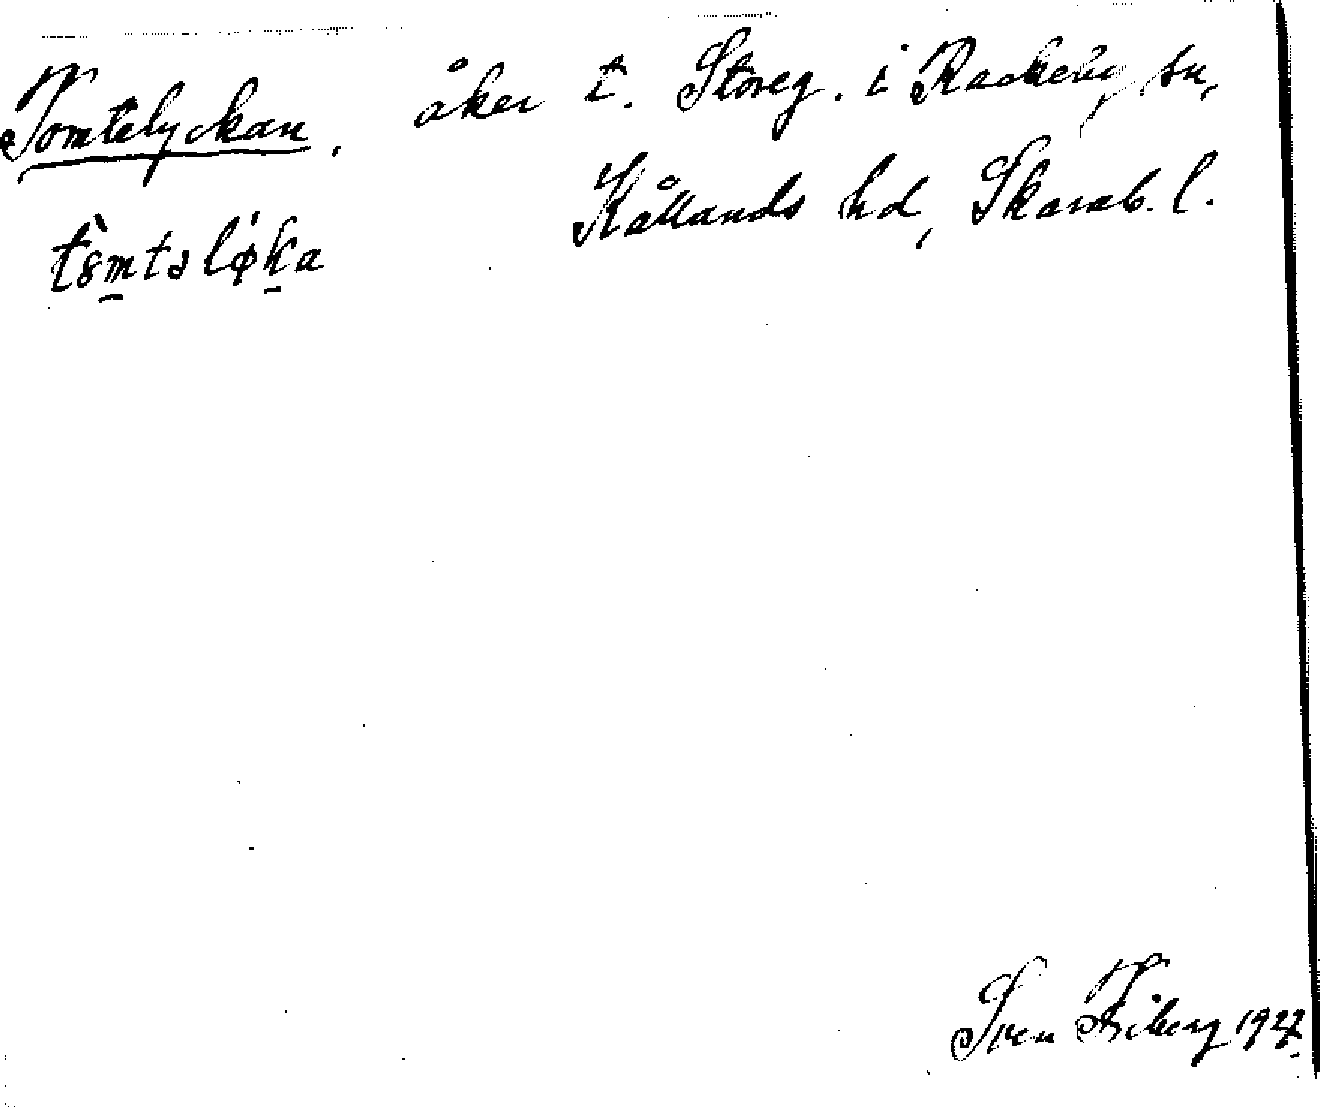 Tomtelyckan, åker t. Storeg. i Rackeby sn,
Kållands hd, Skarab. l.
Sven Fiberg 1927